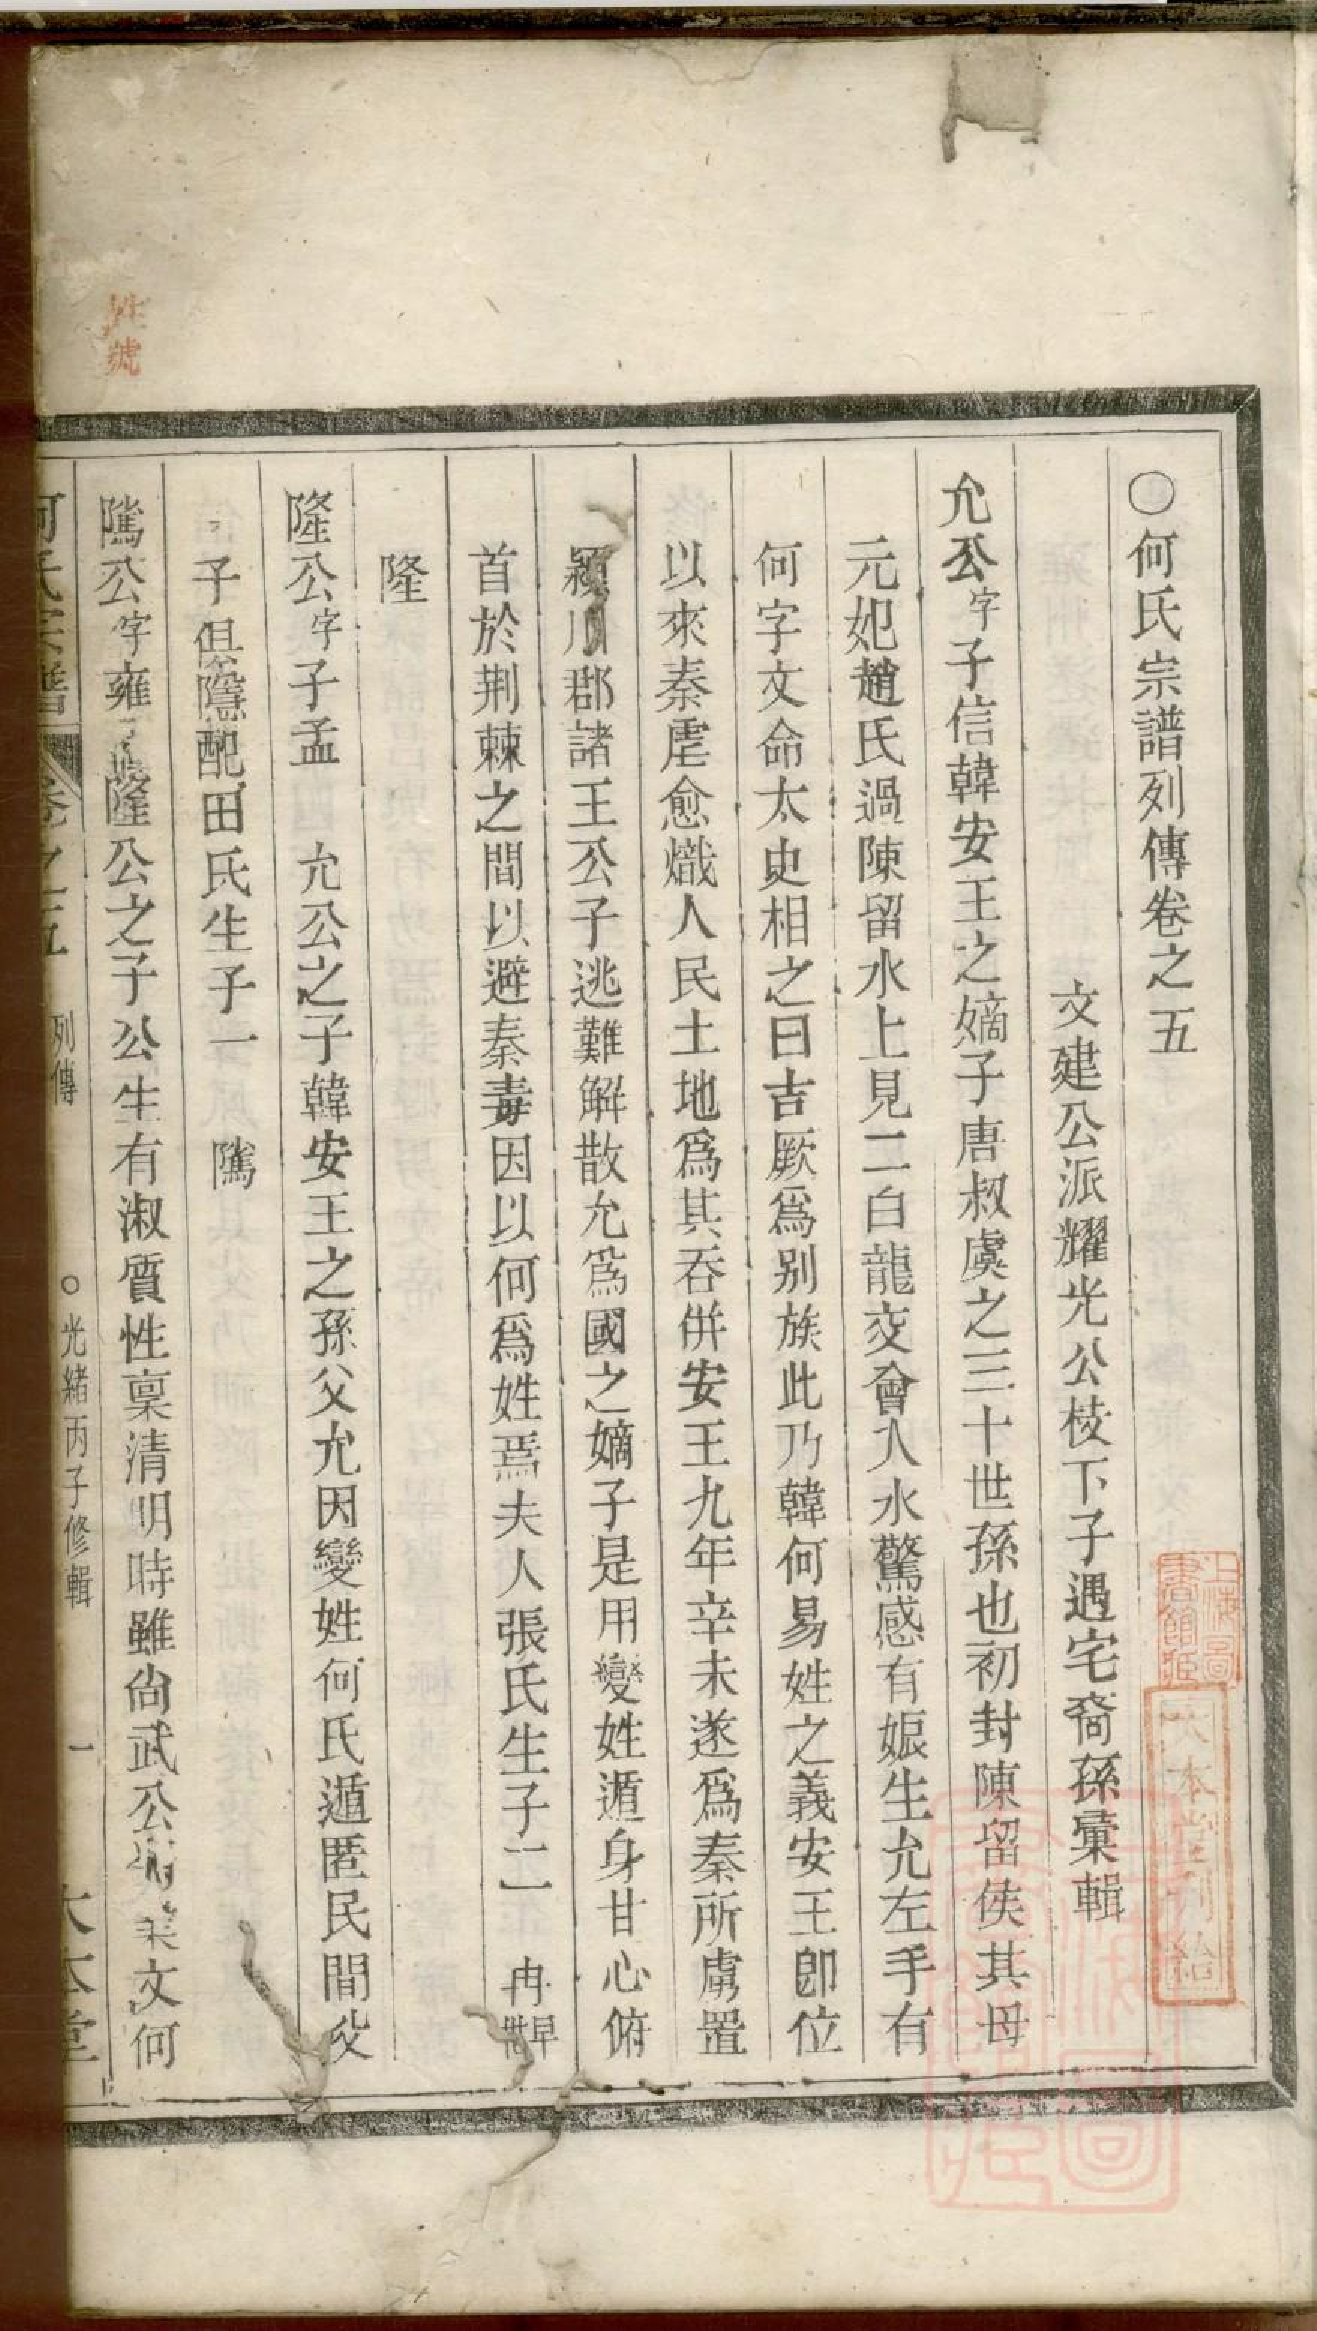 ○何氏宗譜列傳卷之五
文建公派耀光公枝下子遇宅裔孫彙輯
允公字子信韓安王之嫡子唐叔虞之三十世孫也初封陳留侯其母
元妃趙氏過陳留水上見二白龍交會入水驚感有娠生允左手有
何字文命太史相之曰吉厥爲别族此乃韓何易姓之義安王卽位
以來秦虐愈熾人民土地爲其吞併安王九年辛未遂爲秦所虜置
潁川郡諸王公子逃難解散允爲國之嫡子是用變姓遁身甘心俯
首於荆棘之間以避秦毒因以何爲姓焉夫人張氏生子二 冉早世
隆
隆公字子孟 允公之子韓安王之孫父允因變姓何氏遁匿民間父
子俱隱配田氏生子一 隲
隲公字雍 隆公之子公生有淑質性稟清明時雖尙武公 業文何
何氏宗譜 卷之五 列傳 ○光緒丙子修輯 一 大本堂
姓號
上海圖書館藏
大本堂刊給